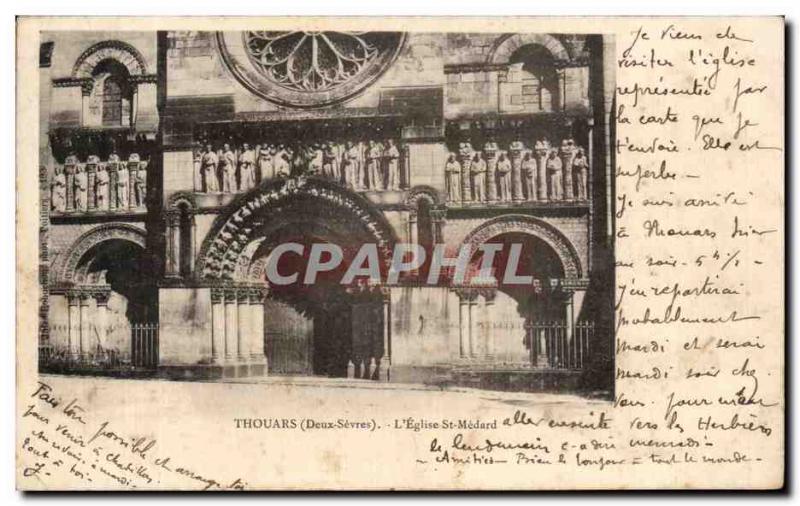 Je viens de
visiter l'église
représentée par
la carte que je
t'envoie. Elle est
superbe -
Je suis arrivé
à Thouars hier
au soir - 5h ½ -
J'en repartirai
probablement
mardi et serai
mardi soir chez
vous pour
aller ensuite vers les Herbiers
le lendemain c-a-dire mercredi -
- Amitiés - Bien le bonjour à tout le monde -
CAPCARTPOSTAL
THOUARS (Deux-Sèvres). - L'Église St-Médard
Fais ton possible et arrange toi
pour venir à Chatillon
à mardi.
tout à toi.
J.